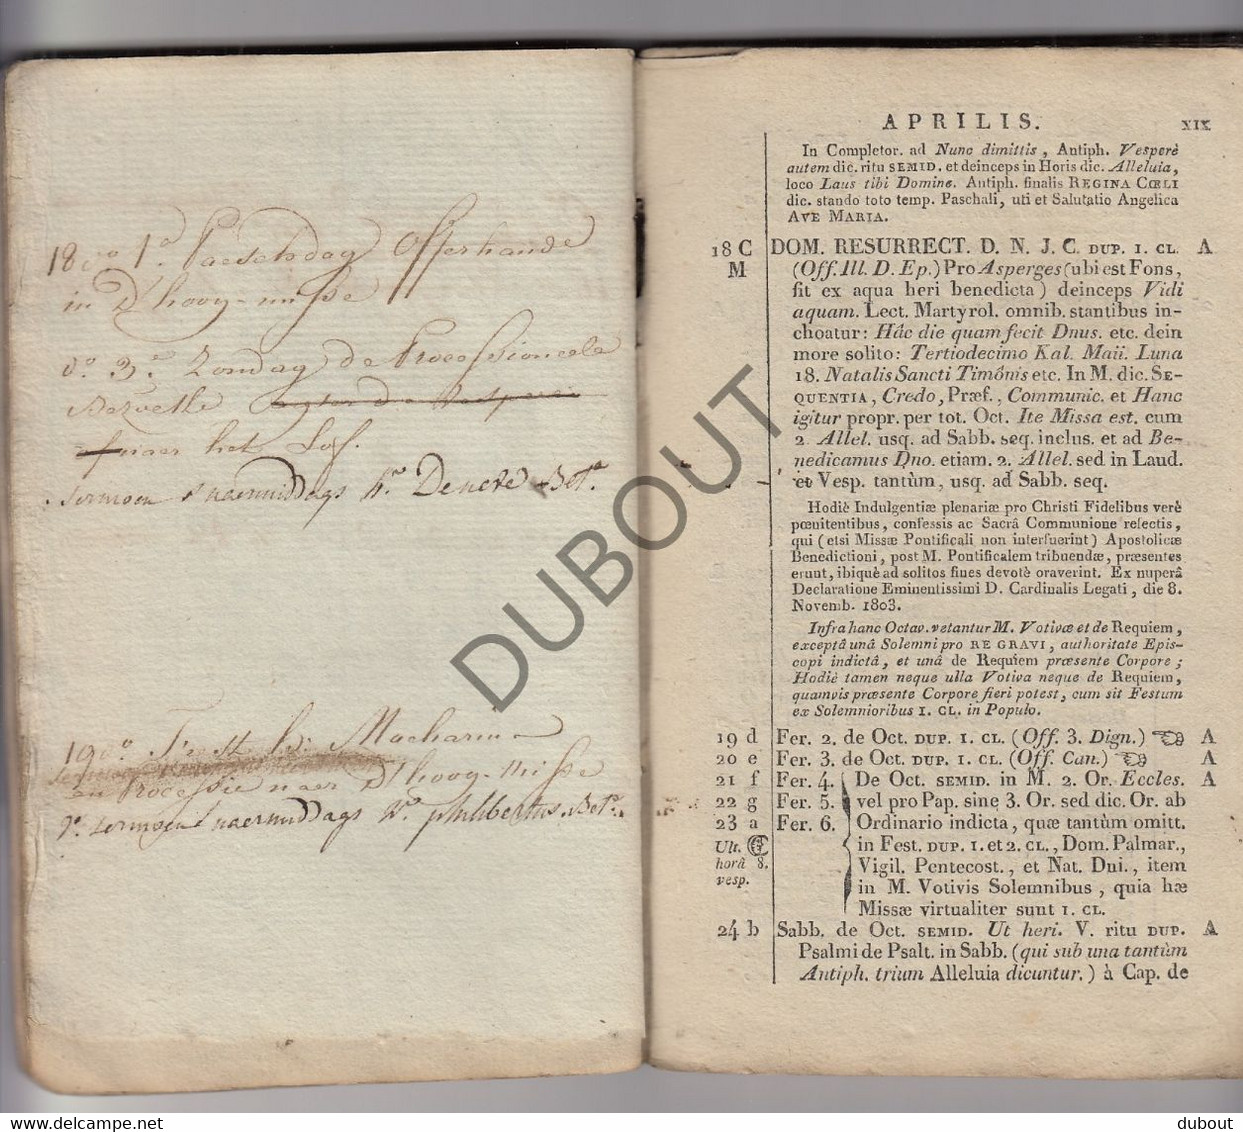 18:° 1° Paeschdag Offerhande
in d'hoog-misse
d° 3° Zondag de Processioneele
het Lof.
Sermoen 's naermiddags Hr Deneve
19:° Macharius
en Processie naer d'hoog-Misse
2° sermoen 's naermiddags philibertus
APRILIS. XIX
In Completor. ad Nunc dimittis, Antiph. Vesperè
autem dic. ritu SEMID. et deinceps in Horis dic. Alleluia,
loco Laus tibi Domine. Antiph. finalis REGINA CŒLI
dic. stando toto temp. Paschali, uti et Salutatio Angelica
AVE MARIA.
18 C DOM. RESURRECT. D. N. J. C. DUP. I. CL. A
M (Off. Ill. D. Ep.) Pro Asperges (ubi est Fons,
fit ex aqua heri benedicta) deinceps Vidi
aquam. Lect. Martyrol. omnib. stantibus in-
choatur: Hâc die quam fecit Dnus. etc. dein
more solito: Tertiodecimo Kal. Maii. Luna
18. Natalis Sancti Timônis etc. In M. dic. SE-
QUENTIA, Credo, Præf., Communic. et Hanc
igitur propr. per tot. Oct. Ite Missa est. cum
2. Allel. usq. ad Sabb. seq. inclus. et ad Be-
nedicamus Dno. etiam. 2. Allel. sed in Laud.
et Vesp. tantùm, usq. ad Sabb. seq.
Hodiè Indulgentiæ plenariæ pro Christi Fidelibus verè
pœnitentibus, confessis ac Sacrâ Communione refectis,
qui (etsi Missæ Pontificali non interfuerint) Apostolicæ
Benedictioni, post M. Pontificalem tribuendæ, præsentes
erunt, ibiquè ad solitos fines devotè oraverint. Ex nuperâ
Declaratione Eminentissimi D. Cardinalis Legati, die 8.
Novemb. 1803.
Infra hanc Octav. vetantur M. Votivæ et de Requiem,
exceptâ unâ Solemni pro RE GRAVI, authoritate Epis-
copi indictâ, et unâ de Requiem præsente Corpore;
Hodiè tamen neque ulla Votiva neque de Requiem,
quamvis præsente Corpore fieri potest, cum sit Festum
ex Solemnioribus I. CL. in Populo.
19 d Fer. 2. de Oct. DUP. I. CL. (Off. 3. Dign.) ☜ A
20 e Fer. 3. de Oct. DUP. I. CL. (Off. Can.) ☜ A
21 f Fer. 4. De Oct. SEMID. in M. 2. Or. Eccles. A
22 g Fer. 5. vel pro Pap. sine 3. Or. sed dic. Or. ab
23 a Fer. 6. Ordinario indicta, quæ tantùm omitt.
Ult. in Fest. DUP. I. et 2. CL., Dom. Palmar.,
horâ 8. Vigil. Pentecost., et Nat. Dni., item
vesp. in M. Votivis Solemnibus, quia hæ
Missæ virtualiter sunt I. CL.
24 b Sabb. de Oct. SEMID. Ut heri. V. ritu DUP. A
Psalmi de Psalt. in Sabb. (qui sub una tantùm
Antiph. trium Alleluia dicuntur.) à Cap. de
DUBOUT
delcampe.net
dubout